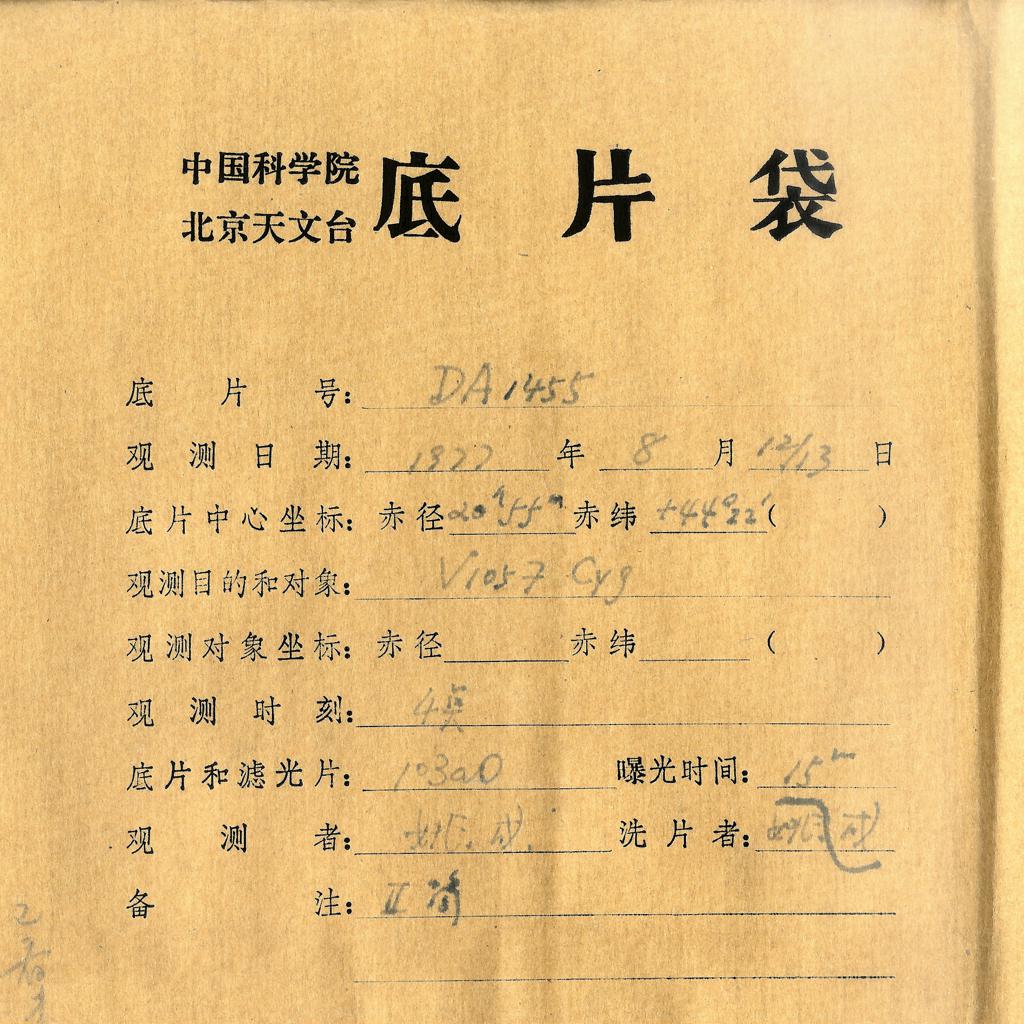 中国科学院
北京天文台
底片袋
底片号: DA1455
观测日期: 1977年 8月 12/13日
底片中心坐标: 赤径20ʰ55ᵐ赤纬+44°22′( )
观测目的和对象: V1057 Cyg
观测对象坐标: 赤径 赤纬 ( )
观测时刻: 4点
底片和滤光片: 103aO 曝光时间: 15ᵐ
观测者: 洗片者:
备注: II